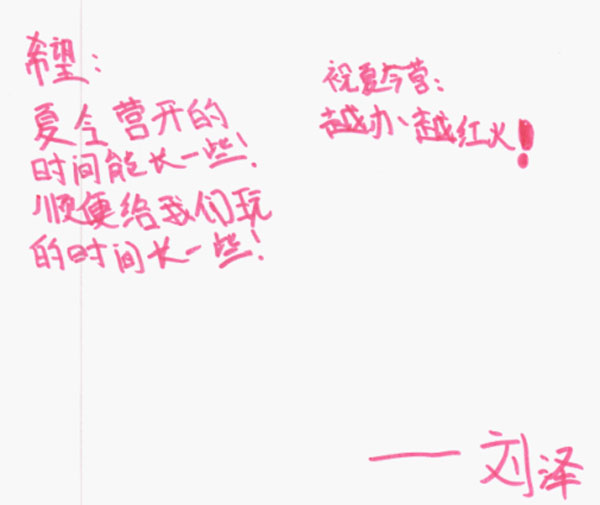 希望：
夏令营开的
时间能长一些！
顺便给我们玩
的时间长一些！
祝夏令营：
越办越红火！
——刘泽